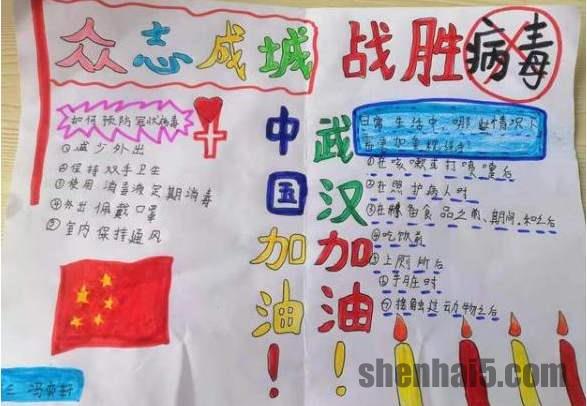 众志成城 战胜病毒
如何预防冠状病毒
①减少外出
②保持双手卫生
③使用消毒液定期消毒
④外出佩戴口罩
⑤室内保持通风
中国加油!
武汉加油!
日常生活中,哪些情况下
①在咳嗽或打喷嚏后
②在照护病人时
③在准备食品之前、期间和之后
④吃饭前
⑤上厕所后
⑥手脏时
⑦接触过动物之后
shenhai5.com